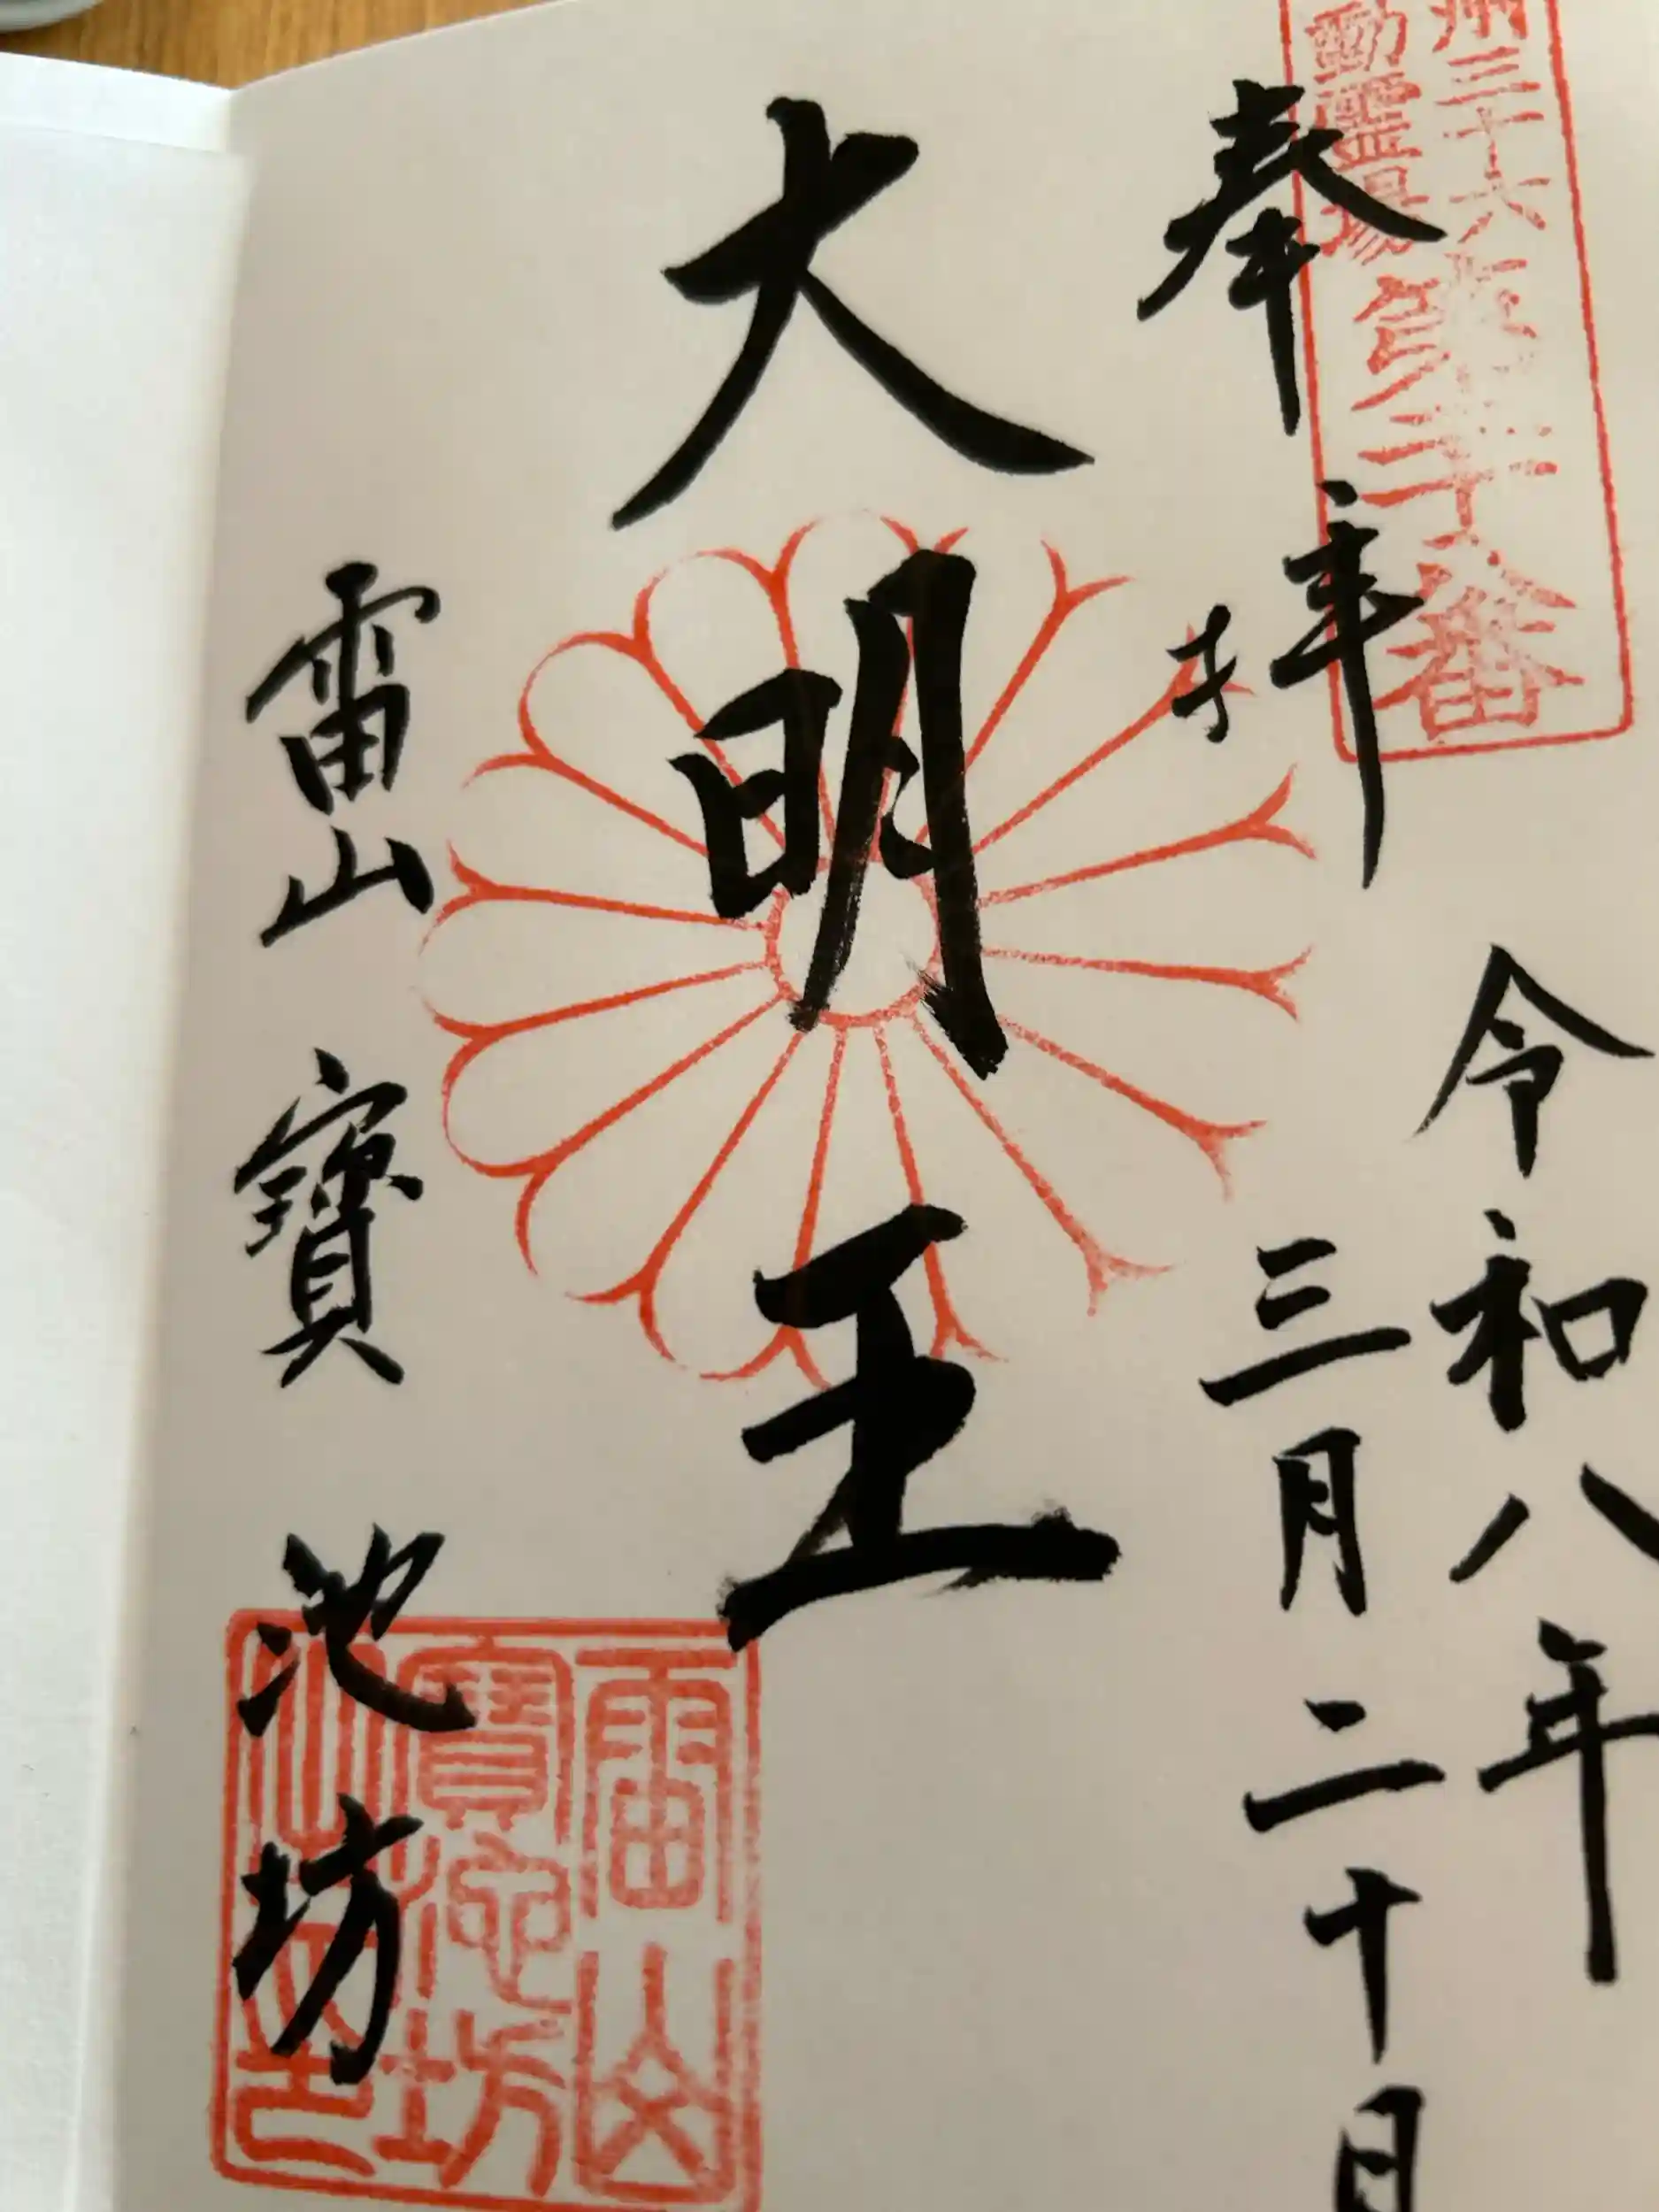 州三十六
動霊場
第二十八番
奉拝
令和八年
三月二十日
大明王
雷山寳池坊
雷山
寳池坊